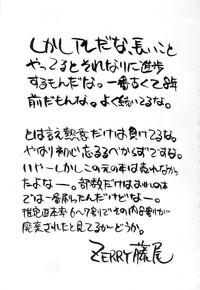 しかしアレだな、長いこと
やってるとそれなりに進歩
するもんだな。一番古くて8年
前だもんな。よく続いてるな。
とは言え熱意だけは負けてるな。
やはり初心忘るるべからずですな。
いやーしかしこの元の本は売れなかっ
たよなー。部数だけはおれの
では一番刷ったんだけど。
推定返本率6〜7割でその内8割が
廃棄されたと見てるがどうか。
ZERRY藤尾